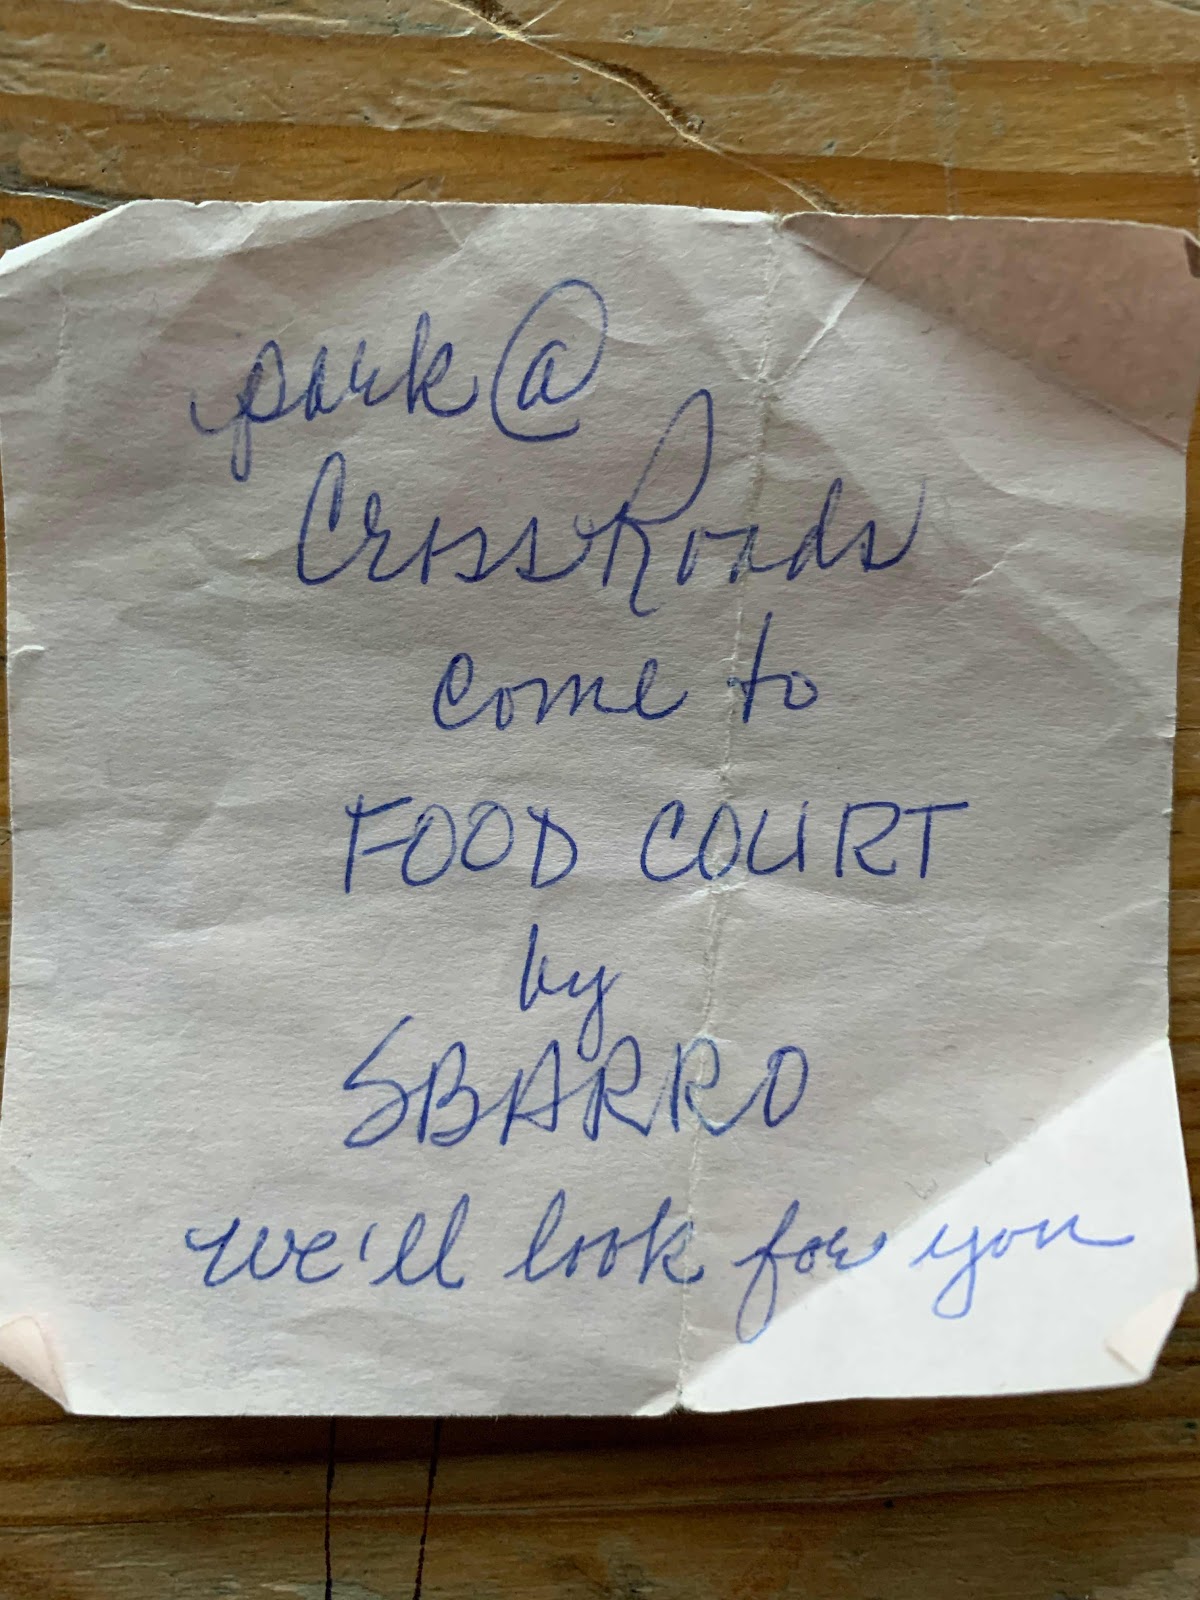 park @
CrossRoads
come to
FOOD COURT
by
SBARRO
we'll look for you